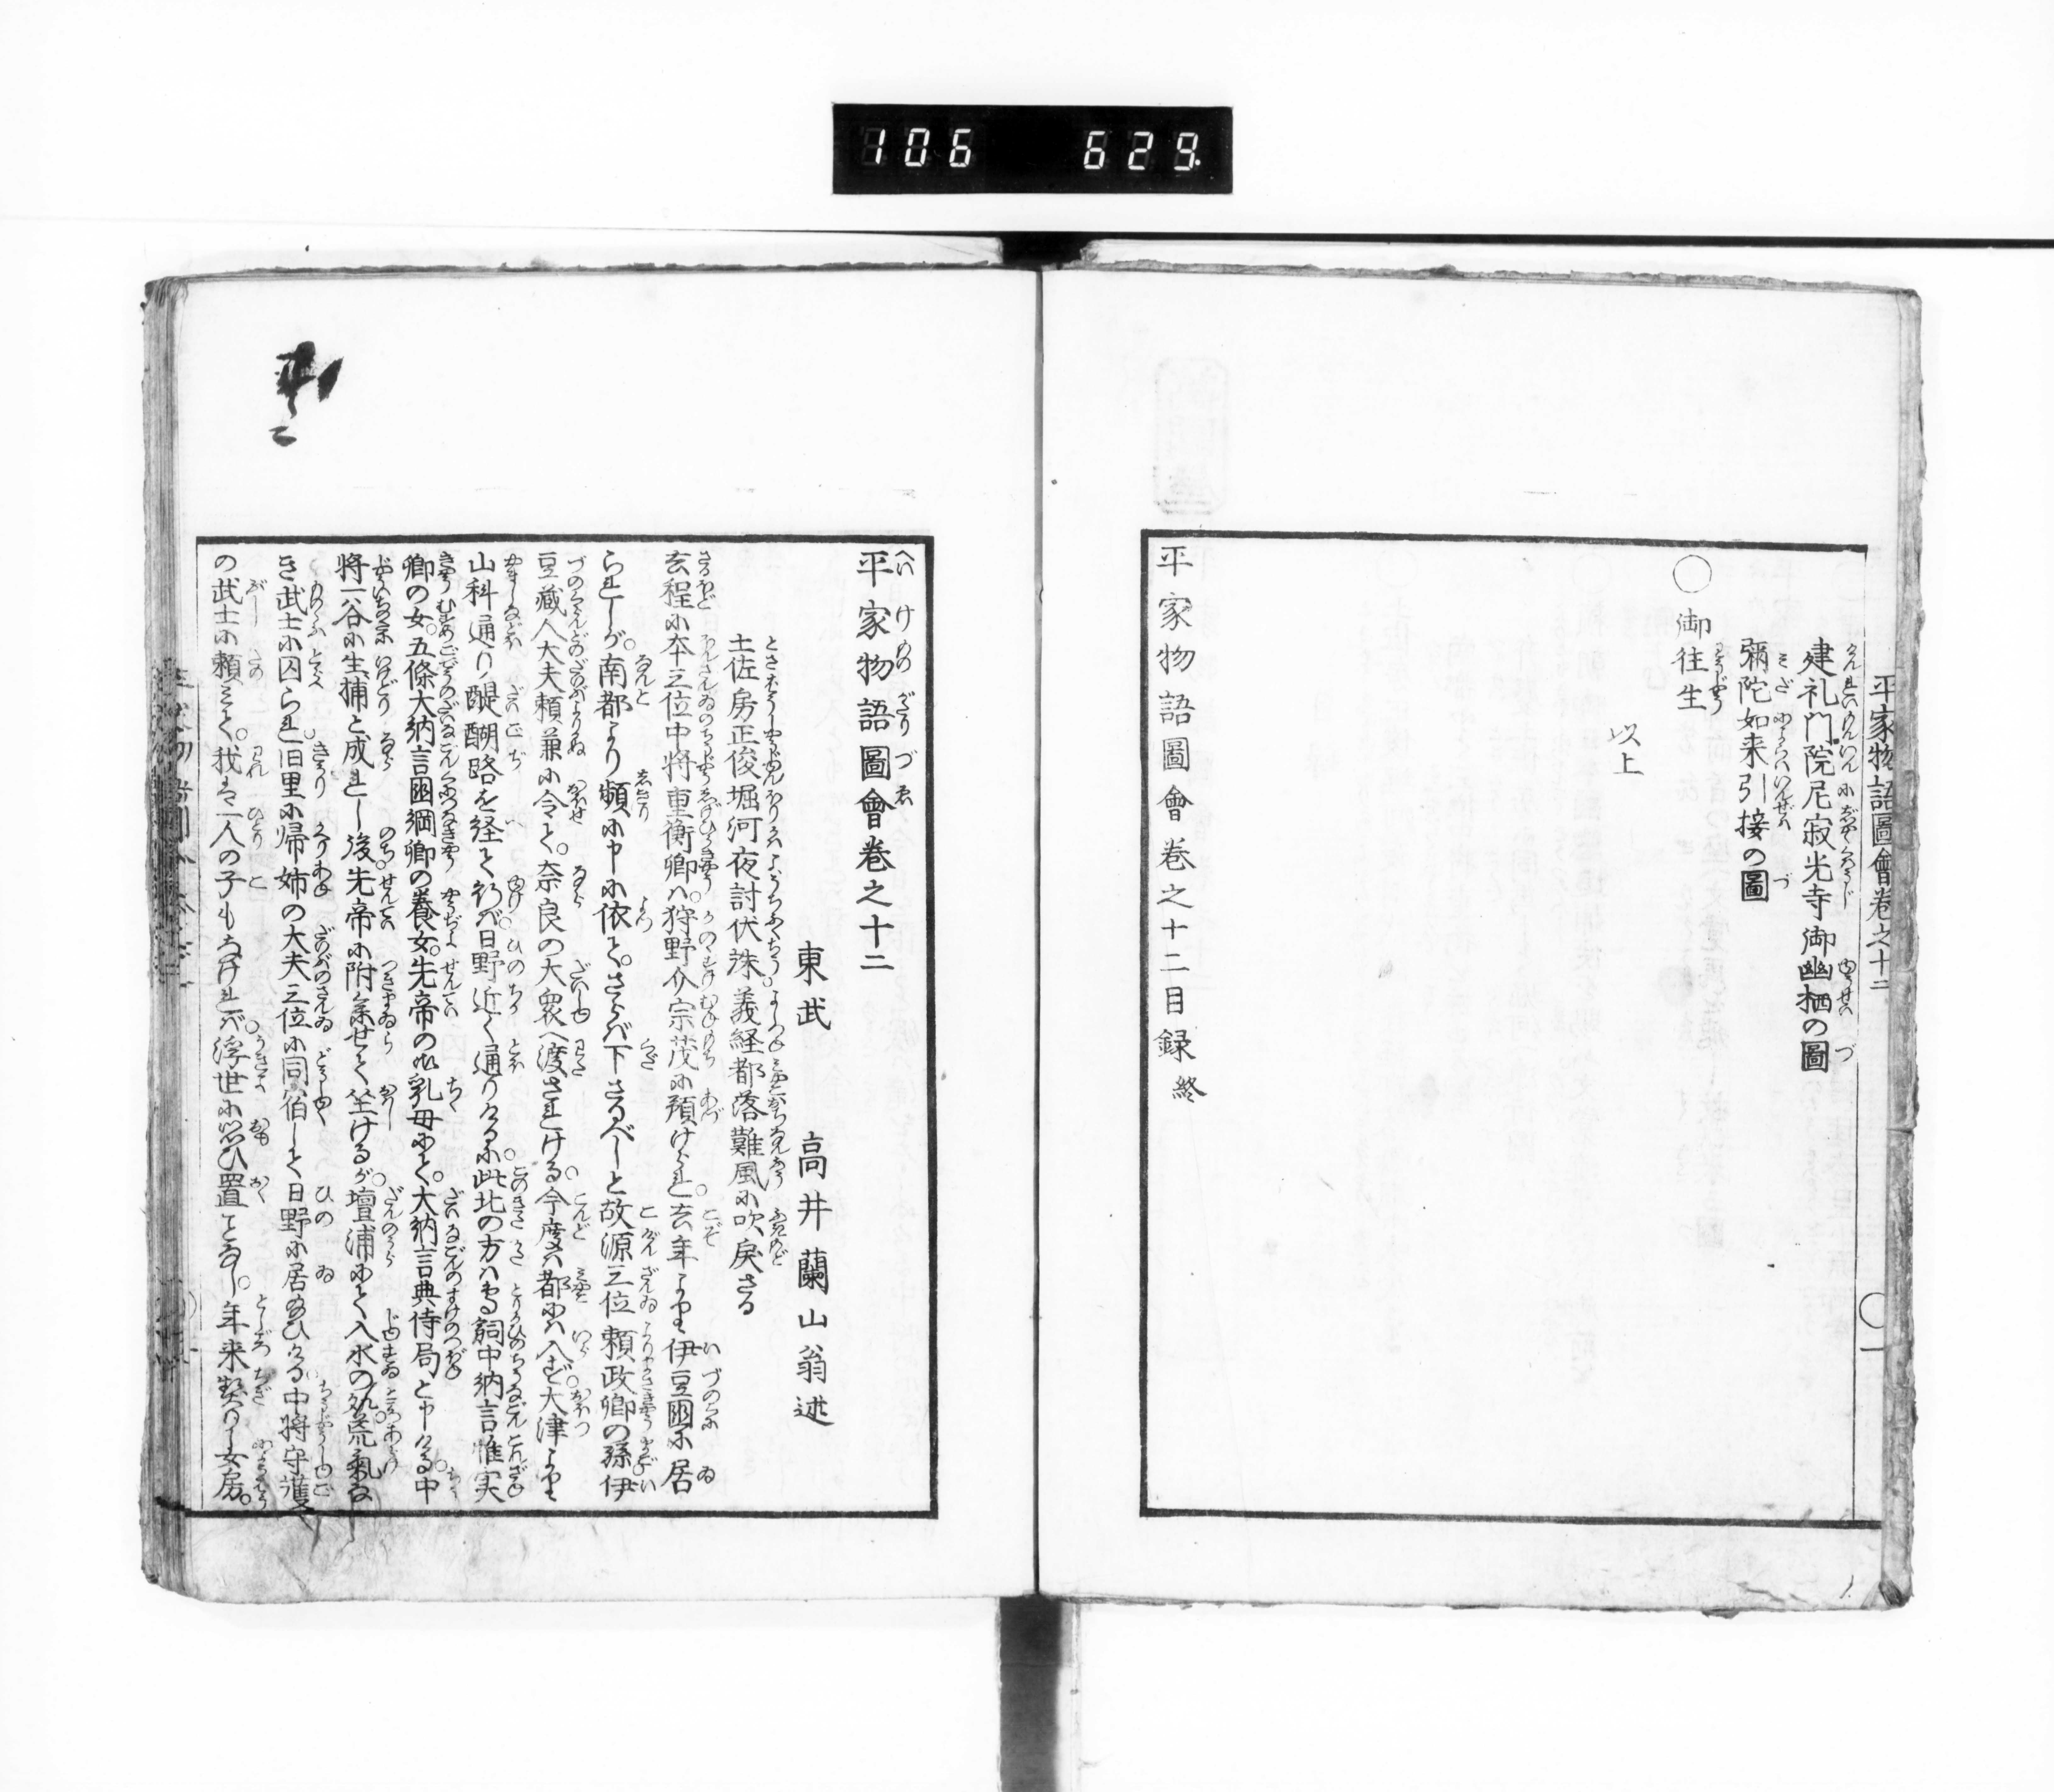 106 629
平家物語圖會卷之十二
建礼門院尼寂光寺御幽栖の圖
彌陀如来引接の圖
○御往生
以上
平家物語圖會卷之十二目録終
平家物語圖會卷之十二
東武 高井蘭山翁述
土佐房正俊堀河夜討伏誅義経都落難風に吹戻さる
去程に本三位中将重衡卿ハ。狩野介宗茂に預けられ。去年より伊豆國に居
られしが。南都より頻に申に依て。さらバ下さるべしと故源三位頼政卿の孫伊
豆蔵人大夫頼兼に令て。奈良の大衆へ渡されける。今度ハ都にハ入ず。大津より
山科通り醍醐路を経て行バ。日野近く通りける。に此北の方ハ鳥飼中納言惟実
卿の女。五條大納言國綱卿の養女。先帝の御乳母にて。大納言典侍局と申しける。中
将一谷に生捕と成れし後。先帝に附参せて坐けるが。壇浦にて入水の処。荒気な
き武士に囚られ。旧里に帰姉の大夫三位に同宿して日野に居給ひける。中将守護
の武士に頼ミて。我ハ一人の子もなけれバ。浮世に思ひ置ことなし。年来契りし女房。